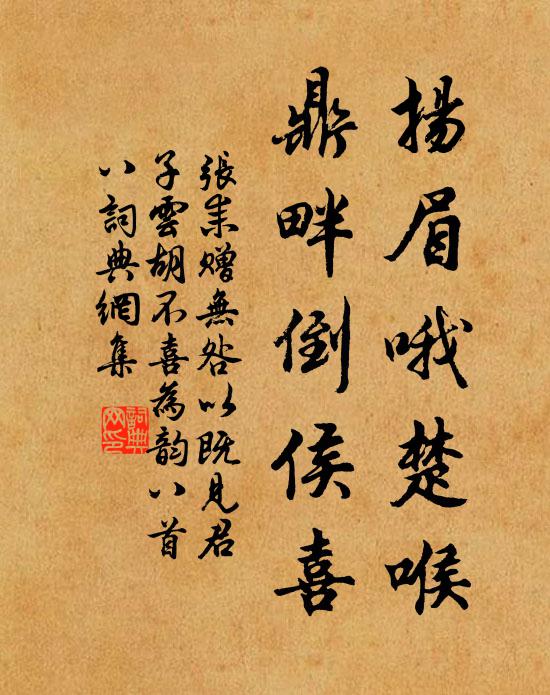 揚眉哦楚喉
鼎畔倒侯喜
張耒贈無咎以既見君
子雲胡不喜為韵八首
八詞典網集
詞典
网印